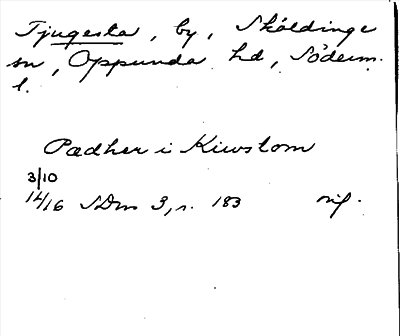 Tjugesta, by, Sköldinge
sn, Oppunda hd, Söderm.
l.
Pædher i Kiwstom
3/10
1416 SDns 3, s. 183 orig.